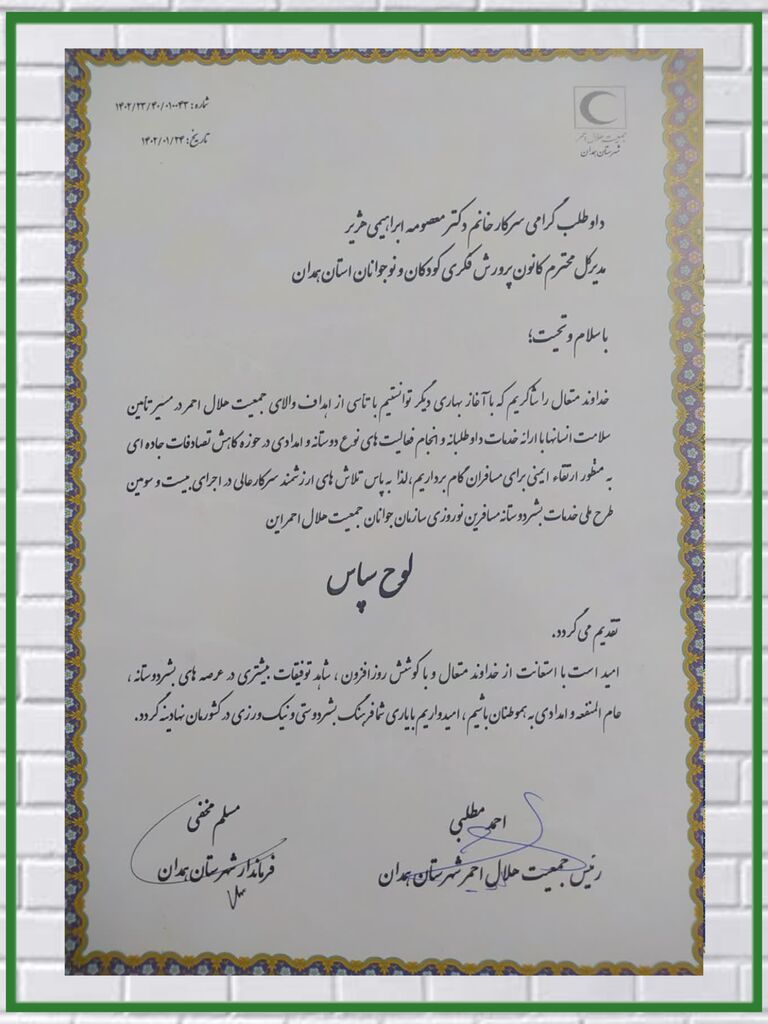 جمعیت هلال احمر
شهرستان همدان
شماره: ۱۴۰۲/۲۳/۴۰/۰۱۰۰۴۳
تاریخ: ۱۴۰۲/۰۱/۲۴
داوطلب گرامی سرکار خانم دکتر معصومه ابراهیمی هژیر
مدیرکل محترم کانون پرورش فکری کودکان و نوجوانان استان همدان
با سلام و تحیت؛
خداوند متعال را شاکریم که با آغاز بهاری دیگر توانستیم با تاسی از اهداف والای جمعیت هلال احمر در مسیر تامین
سلامت انسانها با ارائه خدمات داوطلبانه و انجام فعالیت های نوع دوستانه و امدادی در حوزه کاهش تصادفات جاده ای
به منظور ارتقاء ایمنی برای مسافران گام برداریم، لذا به پاس تلاش های ارزشمند سرکارعالی در اجرای بیست و سومین
طرح ملی خدمات بشردوستانه مسافرین نوروزی سازمان جوانان جمعیت هلال احمر این
لوح سپاس
تقدیم می گردد.
امید است با استعانت از خداوند متعال و با کوشش روزافزون ، شاهد توفیقات بیشتری در عرصه های بشردوستانه ،
عام المنفعه و امدادی به هموطنان باشیم ، امیدواریم با یاری شما فرهنگ بشردوستی و نیک ورزی در کشورمان نهادینه گردد.
احمد مطلبی
رئیس جمعیت هلال احمر شهرستان همدان
مسلم مخفی
فرماندار شهرستان همدان